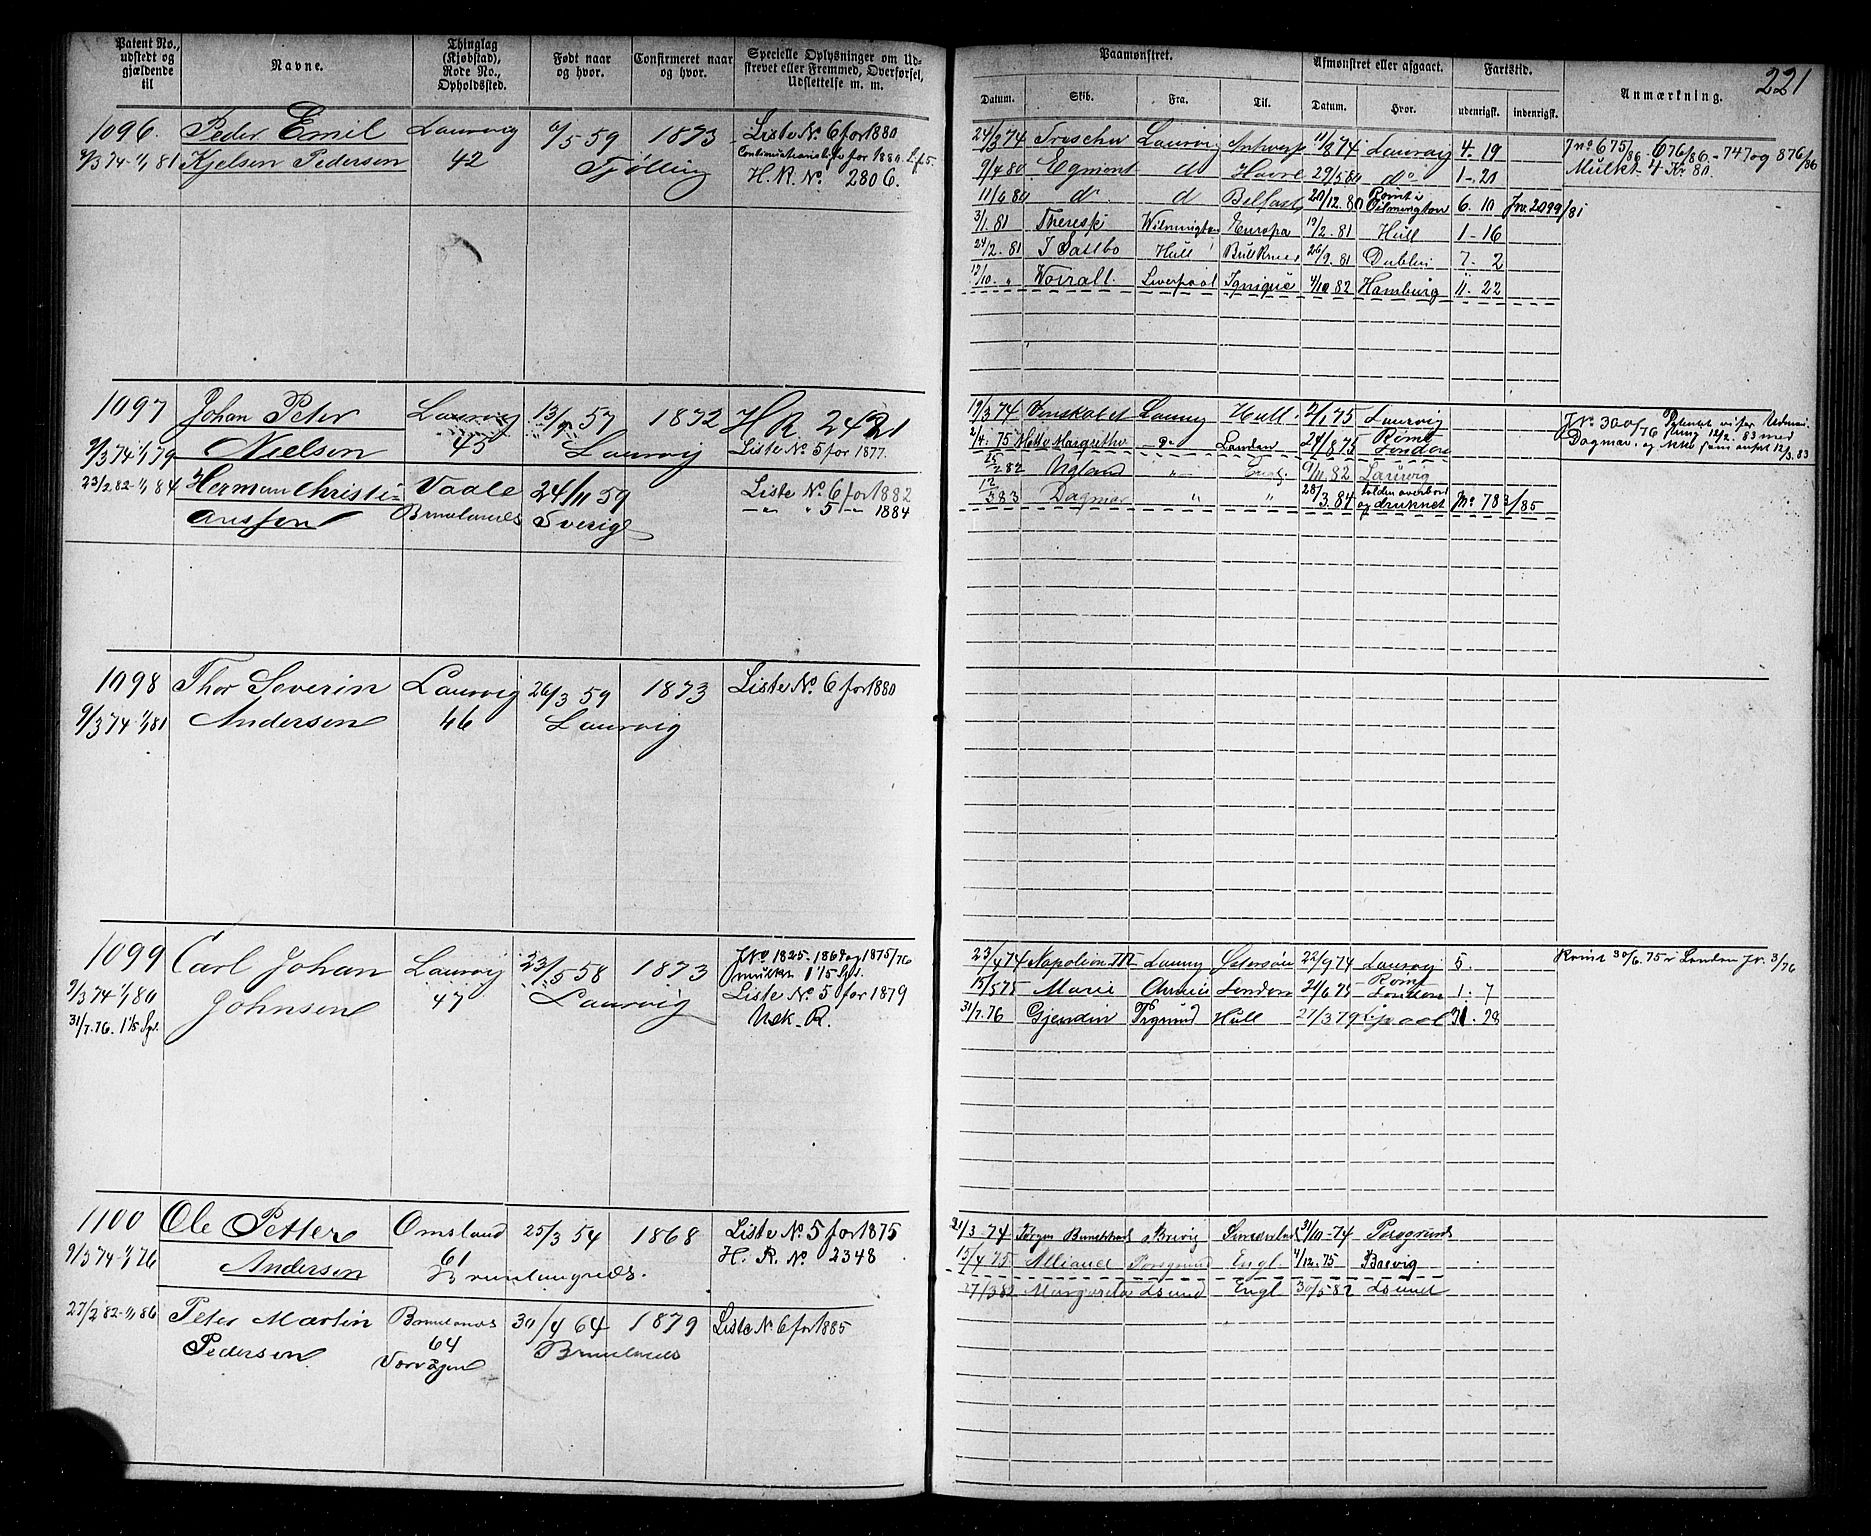 221
Patent No., udstedt og gjældende til
Navne.
Thinglag (Kjøbstad), Rode No., Opholdssted.
Født naar og hvor.
Confirmeret naar og hvor.
Specielle Oplysninger om Udstrevet eller Fremmed, Overførsel, Udslettelse m. m.
Paamønstret.
Afmønstret eller afgaaet.
Fartstid.
Anmærkning.
Datum. Skib. Fra. Til. Datum. Hvor. udenrigsk. indenrigsk.
1096. Peder Emil Laurvig 6/5 59 1873 Liste No. 6 for 1880
9/3 74-1/1 81 Kjelsen Pedersen 42 Tjølling
H. R. No. 2806.
24/3 74 Laurvig Antwerp 11/8 74 Laurvig 4. 19
9/4 80 Egmont do Havre 29/5 80 do 1-21
11/6 80 do do Belfast 20/12. 80 Rømt i Wilmington 6. 10 Jr. 2099/81
3/1. 81 Wilmington Europa 19/2. 81 Hull 1-16
24/2. 81 Hull 26/9. 81 Dublin 7. 2
12/10. " Liverpool Iquique 4/10 82 Hamburg 11. 22
Jno 675/86 - 676/86 - 747 og 876/86
Mulkt 4 Kr 80.
1097 Johan Peter Laurvig 13/9 57 1872 H R 2421
9/3 74 1/1 79 Nielsen 43 Laurvig Liste No. 5 for 1877.
23/2 82-1/1 84 Herman Christi- Vaale 24/11 59 Liste No. 6 for 1882
anssen Brunlanes Sverige -"- " 5 -"- 1884
19/3 74 Venskabet Laurvig Hull 2/1 75 Laurvig
2/4. 75 Mette Margrethe do London 24/8 75 Rømt London
25/2 82 Ugland " Engl. 9/11. 82 Laurvig
12/3 83 Dagmar " " 28/3. 84 falden overbord og druknet Jno 783/85
JNo 300/76
Dagmar, og ikke som anført 12/3. 83
1098 Thor Severin Laurvig 26/3 59 1873 Liste No. 6 for 1880
9/3 74 1/1 81 Andersen 46 Laurvig
1099 Carl Johan Laurvig 23/5 58 1873 JNo 1825-1867 og 1875/76
9/3 74 1/1 80 Johnsen 47 Laurvig mulkt 1 1/5 Spd.
Liste No. 5 for 1879
31/7. 76. 1 1/5 Spd.
23/4 74 Napoleon III Laurvig 22/9 74 Laurvig 5.
15/5 75 Marie London 21/6 75 Rømt London 1. 7
31/7. 76 Gjendin Prsgrund Hull 27/3 79 Lpool 31. 28
Rømt 30/6. 75 i London Jr. 3/76
1100 Ole Petter Omsland 25/3 54 1868 Liste No. 5 for 1875
9/3 74-1/1 76 Andersen 61 Brunlangnæs. H. R. No. 2348
27/2 82-1/1 86 Peter Martin Brunlanæs 30/4 64 1879 Liste No 6 for 1885
Pedersen 64 Brunlanæs
21/3. 74 Jørgen Brevig 31/10-74 Porsgrund
15/4 75 Alliance Porsgrund Engl. 4/12. 75 Brevig
27/3 82 Margareta Engl 30/5 82